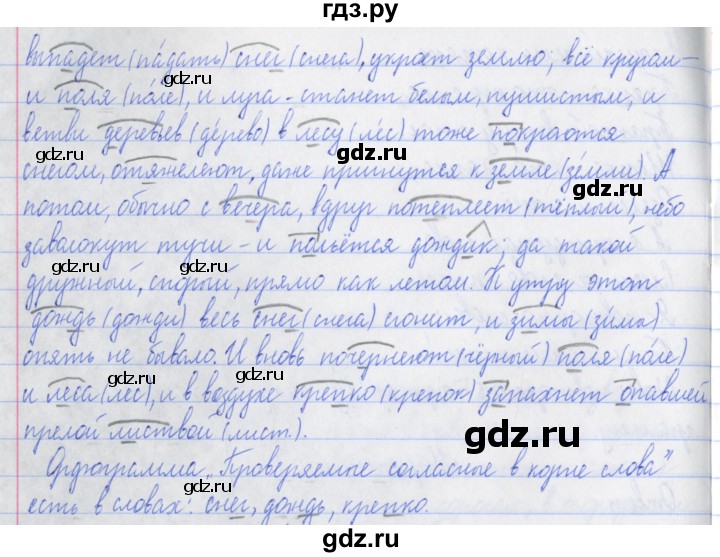 гдз.ру
выпадет (па́дать) снег (снега), укроет землю; всё кругом –
и поля (по́ле), и луга – станет белым, пушистым, и
ветви деревьев (де́рево) в лесу (лес) тоже покроются
снегом, отяжелеют, даже пригнутся к земле (зе́мли). А
потом, обычно с вечера, вдруг потеплеет (тёплый), небо
заволокут тучи – и польётся дождик; да такой
дружный, спорый, прямо как летом. К утру этот
дождь (дожди) весь снег (снега) сгонит, и зимы (зи́мы)
опять не бывало. И вновь почернеют (чёрный) поля (по́ле)
и леса (лес), и в воздухе крепко (крепок) запахнет опавшей
прелой листвой (лист.).
Орфограмма „Проверяемые согласные в корне слова"
есть в словах: снег, дождь, крепко.
gdz.ru
gdz.ru
gdz.ru
gdz.ru
gdz.ru
gdz.ru
gdz.ru
gdz.ru
gdz.ru
gdz.ru
gdz.ru
gdz.ru